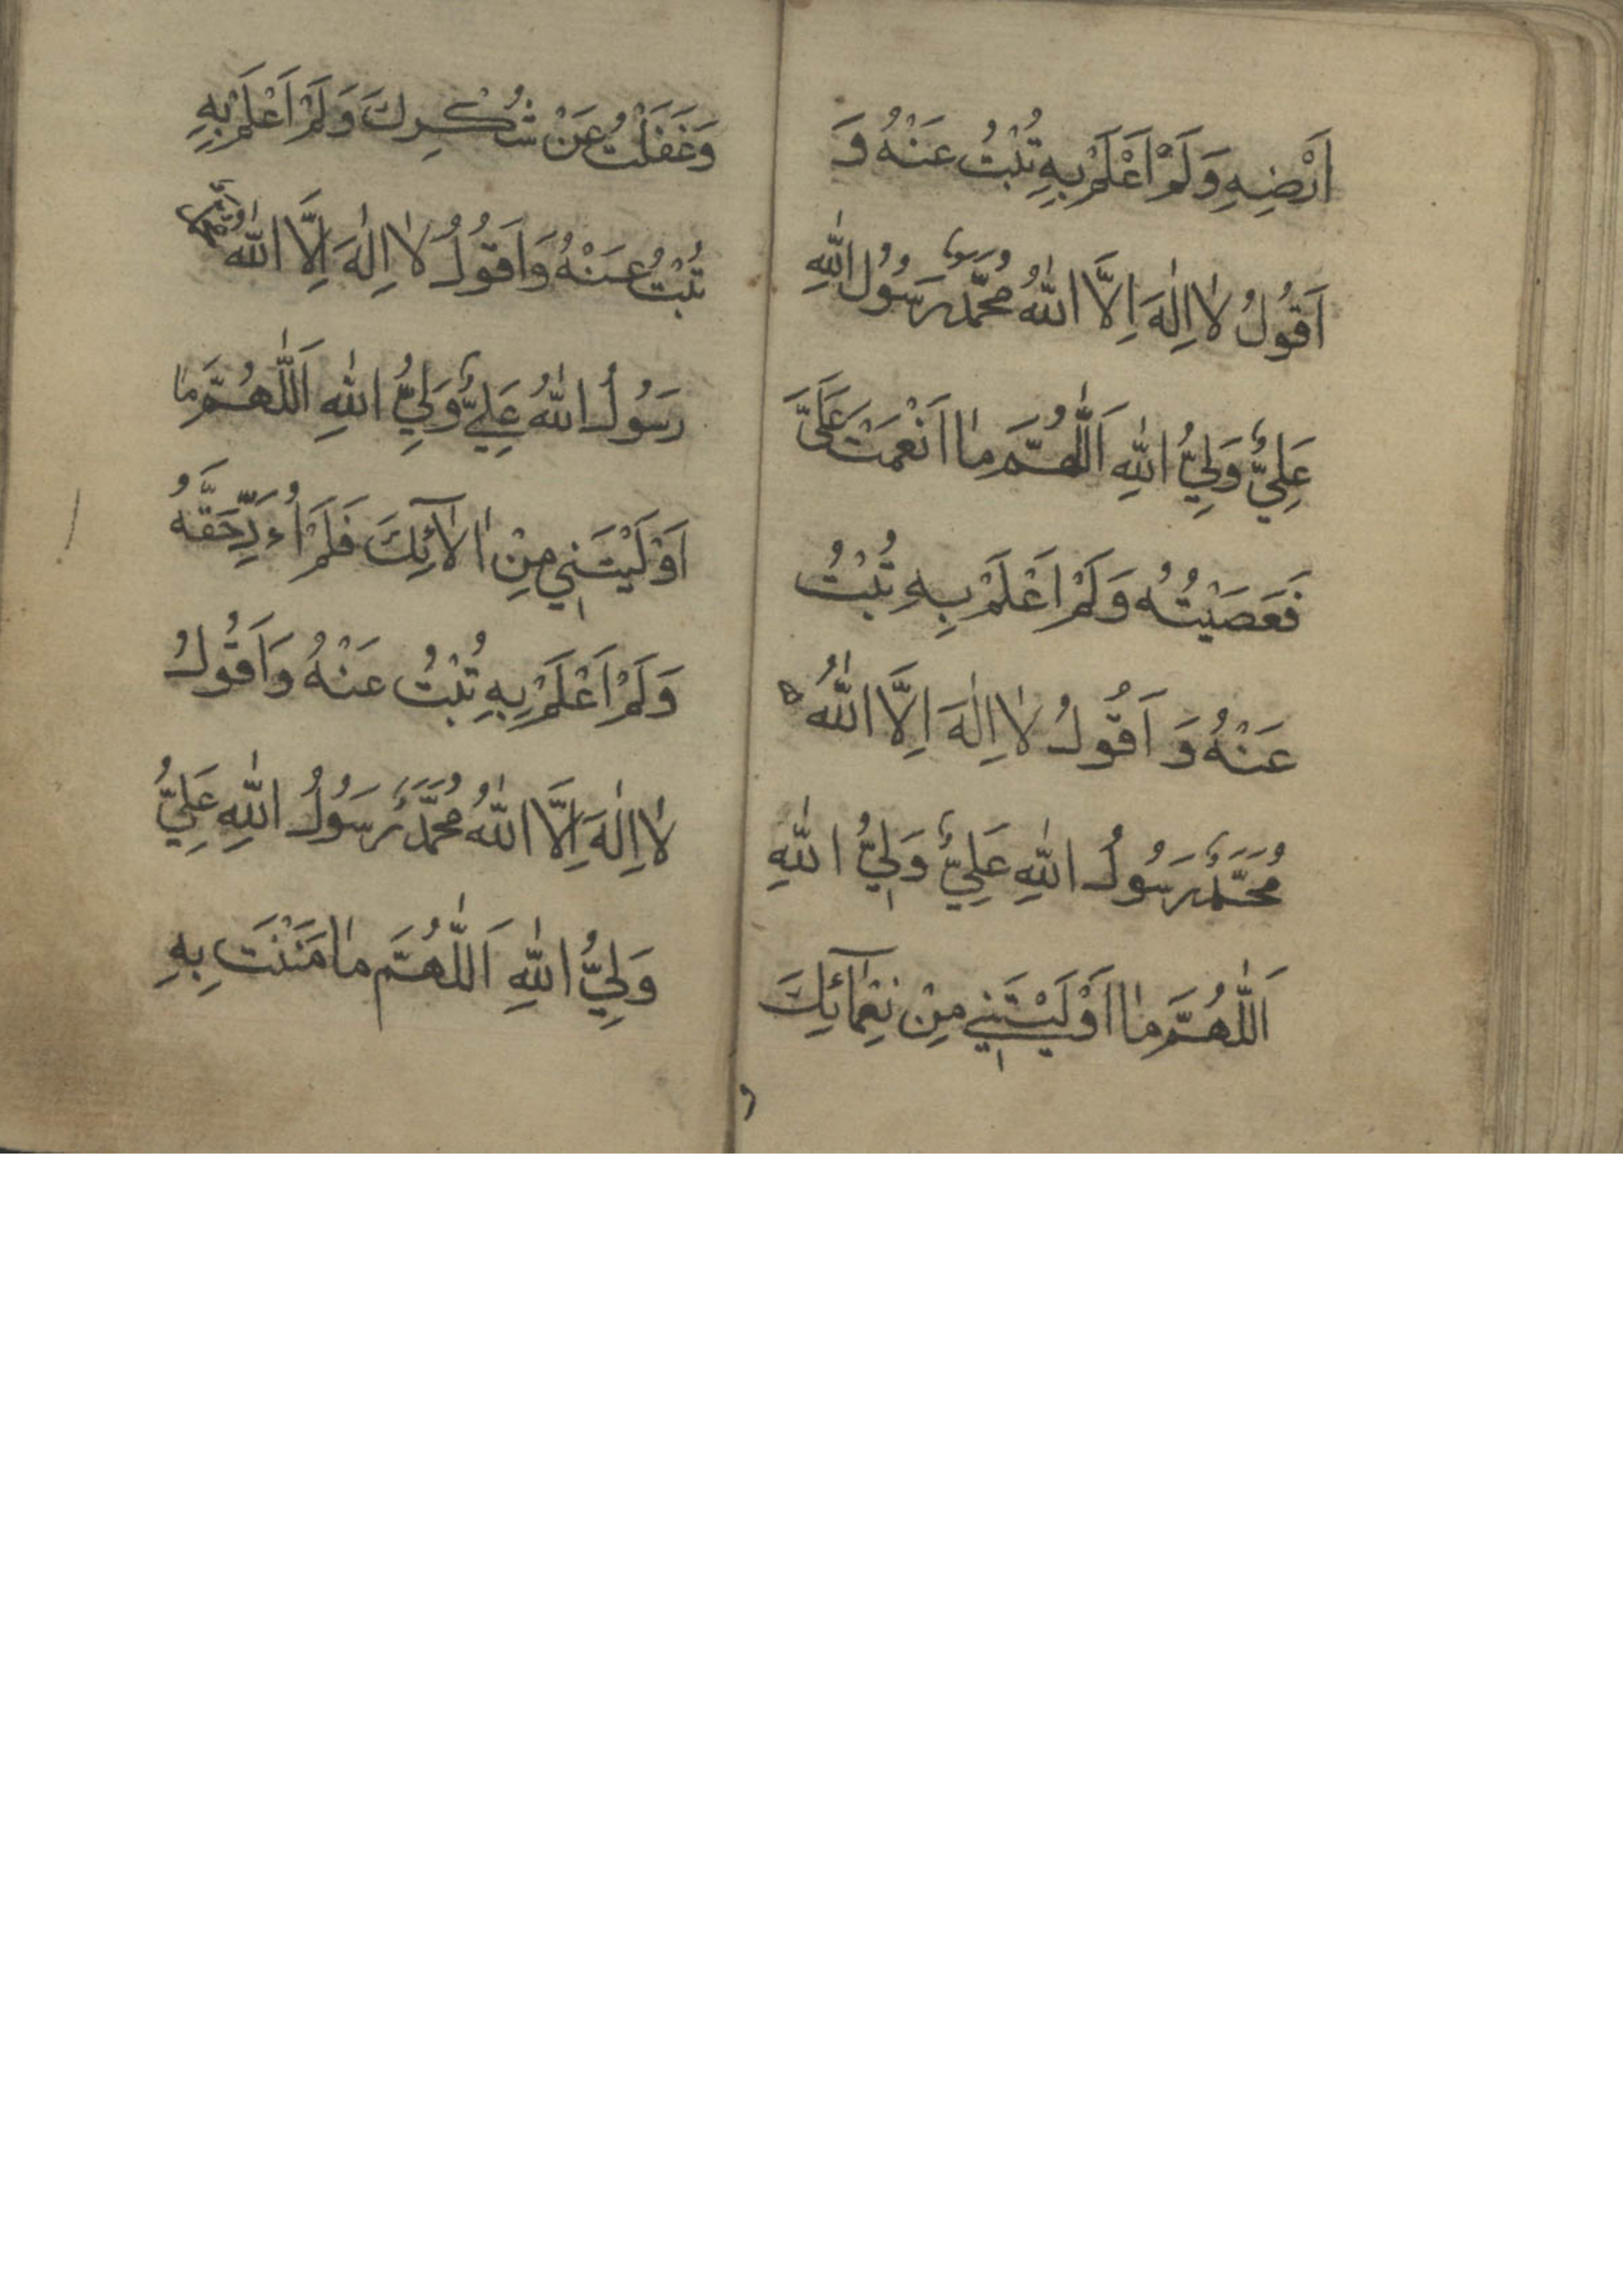 اَرْضِهِ وَلَمْ اَعْلَمْ بِهِ تُبْتُ عَنْهُ وَ
اَقُولُ لا اِلٰهَ اِلَّا اللّٰهُ مُحَمَّدٌ رَسُولُ اللّٰهِ
عَلِيٌّ وَلِيُّ اللّٰهِ اَللّٰهُمَّ مٰا اَنْعَمْتَ عَلَيَّ
فَعَصَيْتُهُ وَلَمْ اَعْلَمْ بِهِ تُبْتُ
عَنْهُ وَ اَقُولُ لٰا اِلٰهَ اِلَّا اللّٰهُ
مُحَمَّدٌ رَسُولُ اللّٰهِ عَلِيٌّ وَلِيُّ اللّٰهِ
اَللّٰهُمَّ مٰا اَوْلَيْتَنِي مِنْ نِعْمٰآئِكَ
وَغَفَلْتُ عَنْ شُكْرِكَ وَلَمْ اَعْلَمْ بِهِ
تُبْتُ عَنْهُ وَاَقُولُ لٰا اِلٰهَ اِلَّا اللّٰهُ مُحَمَّدٌ
رَسُولُ اللّٰهُ عَلِيٌّ وَلِيُّ اللّٰهِ اَللّٰهُمَّ مٰا
اَوْلَيْتَنِي مِنْ اٰلٰآئِكَ فَلَمْ اُءَدِّ حَقَّهُ
وَلَمْ اَعْلَمْ بِهِ تُبْتُ عَنْهُ وَاَقُولُ
لٰا اِلٰهَ اِلَّا اللّٰهُ مُحَمَّدٌ رَسُولُ اللّٰهِ عَلِيٌّ
وَلِيُّ اللّٰهِ اَللّٰهُمَّ مٰا مَنَنْتَ بِهِ